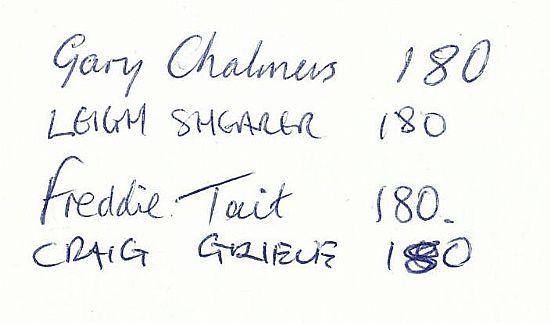 Gary Chalmers 180
LEIGH SHEARER 180
Freddie Tait 180.
CRAIG GRIEVE 180